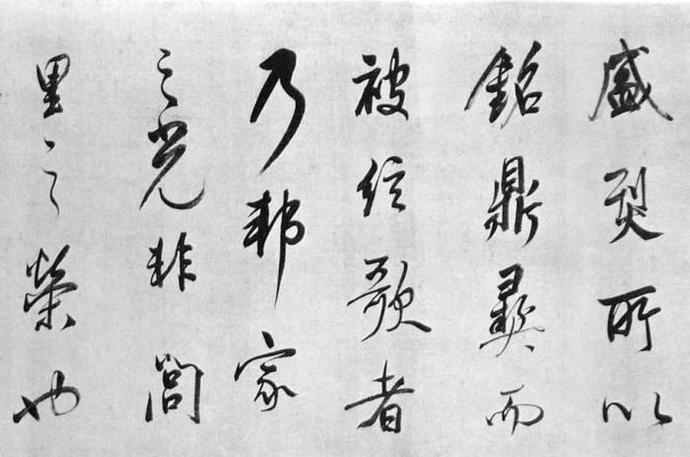 盛烈所以
銘鼎彝而
被絃歌者
乃邦家
之光非閭
里之榮也